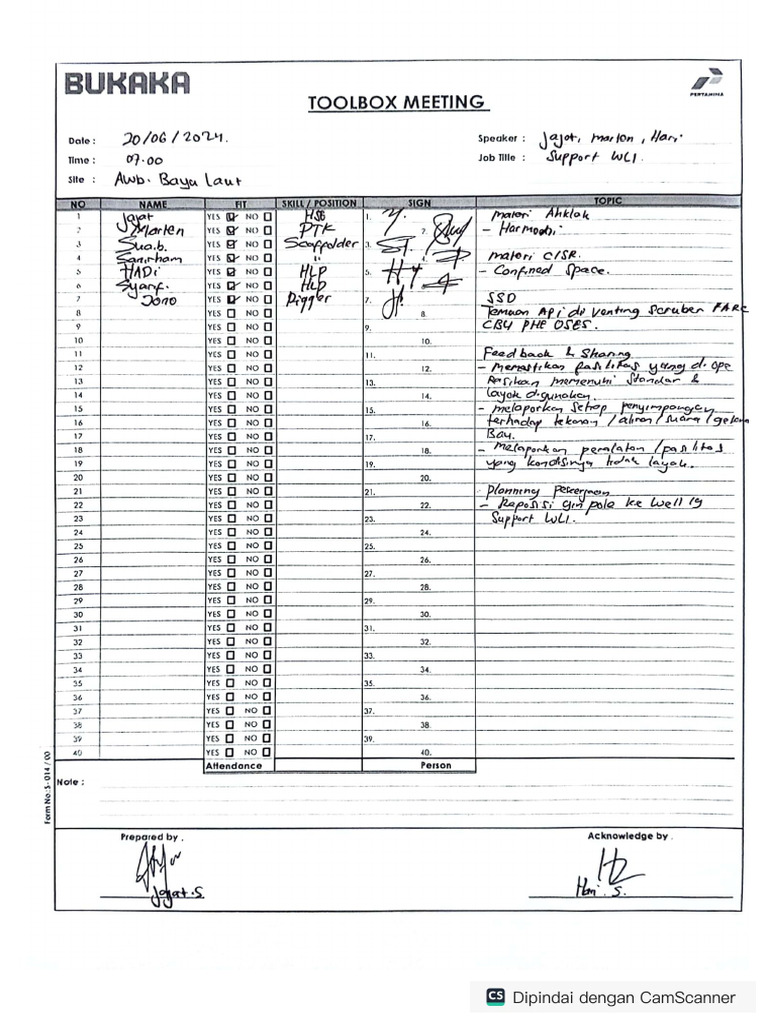 BUKAKA
PERTAMINA
TOOLBOX MEETING
Date : 20/06/2024.
Speaker : Jajat, Marten, Hari
Time : 07.00
Job Title : Support WLI.
Site : Awb. Bayu Laut
NO NAME FIT SKILL / POSITION SIGN TOPIC
1 Jajat YES NO HSE 1. materi Ahklak
2 Marten YES NO PTK 2. - Harmoni
3 Sua.b. YES NO Scaffolder 3.
4 Sanirham YES NO " materi CISR.
5 HADi YES NO HLP 5. - Confined Space.
6 Syarif. YES NO HLP
7 Jono YES NO Rigger 7. SSD
8 YES NO 8. Temuan Api di Venting Scruber FARC
9 YES NO 9. CBU PHE OSES.
10 YES NO 10.
11 YES NO 11. Feedback & Sharing
12 YES NO 12. - Memastikan fasilitas yang di ope
13 YES NO 13. Rasikan memenuhi Standar &
14 YES NO 14. layak digunakan.
15 YES NO 15. - melaporkan setiap penyimpangan
16 YES NO 16. terhadap tekanan / aliran / suara /
17 YES NO 17. Bau.
18 YES NO 18. - Melaporkan peralatan / fasilitas
19 YES NO 19. yang kondisinya tidak layak.
20 YES NO 20.
21 YES NO 21. Planning pekerjaan
22 YES NO 22. - Reposisi gin pole ke well 19
23 YES NO 23. Support WLI.
24 YES NO 24.
25 YES NO 25.
26 YES NO 26.
27 YES NO 27.
28 YES NO 28.
29 YES NO 29.
30 YES NO 30.
31 YES NO 31.
32 YES NO 32.
33 YES NO 33.
34 YES NO 34.
35 YES NO 35.
36 YES NO 36.
37 YES NO 37.
38 YES NO 38.
39 YES NO 39.
40 YES NO 40.
Attendance Person
Form No: S - 014 / 00
Note :
Prepared by . Acknowledge by .
Jajat.S Hari . S.
CS Dipindai dengan CamScanner